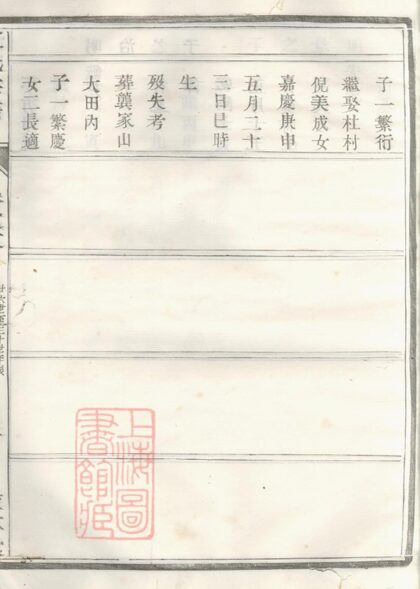 子一繁衍
繼娶杜村
倪美成女
嘉慶庚申
五月二十
三日巳時
生
歿失考
葬龔家山
大田內
子一繁慶
女三長適
上海圖
書館藏